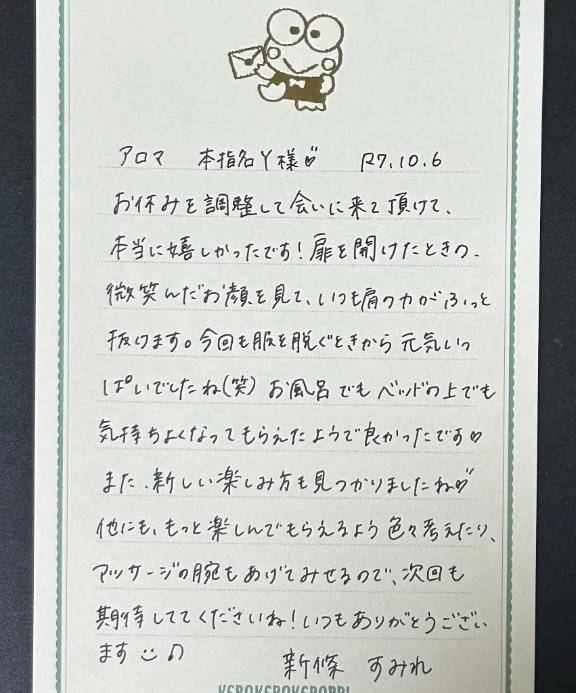 アロマ 本指名Y様♡ R7.10.6
お休みを調整して会いに来て頂けて、
本当に嬉しかったです!扉を開けたときの、
微笑んだお顔を見て、いつも肩の力がふっと
抜けます。今回も服を脱ぐときから元気いっ
ぱいでしたね(笑)お風呂でもベッドの上でも
気持ちよくなってもらえたようで良かったです♡
また、新しい楽しみ方も見つかりましたね♡
他にも、もっと楽しんでもらえるよう色々考えたり、
マッサージの腕もあげてみせるので、次回も
期待しててくださいね!いつもありがとうござい
ます☺♫ 新條 すみれ
KEROKEROKEROPPI